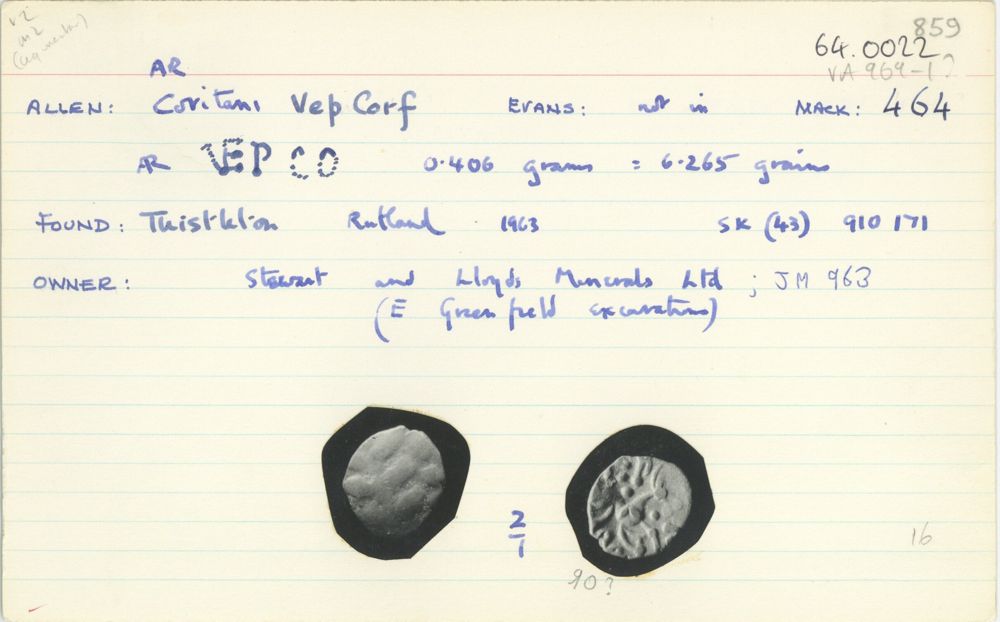 V2
m2
859
64.0022
VA 969-1?
AR
ALLEN: Coritani Vep Corf EVANS: not in MACK: 464
AR VEP CO 0.406 grams = 6.265 grains
FOUND: Thistleton Rutland 1963 SK (43) 910 171
OWNER: Stewart and Lloyds Minerals Ltd ; JM 963
(E Greenfield excavations)
2
1
16
90?